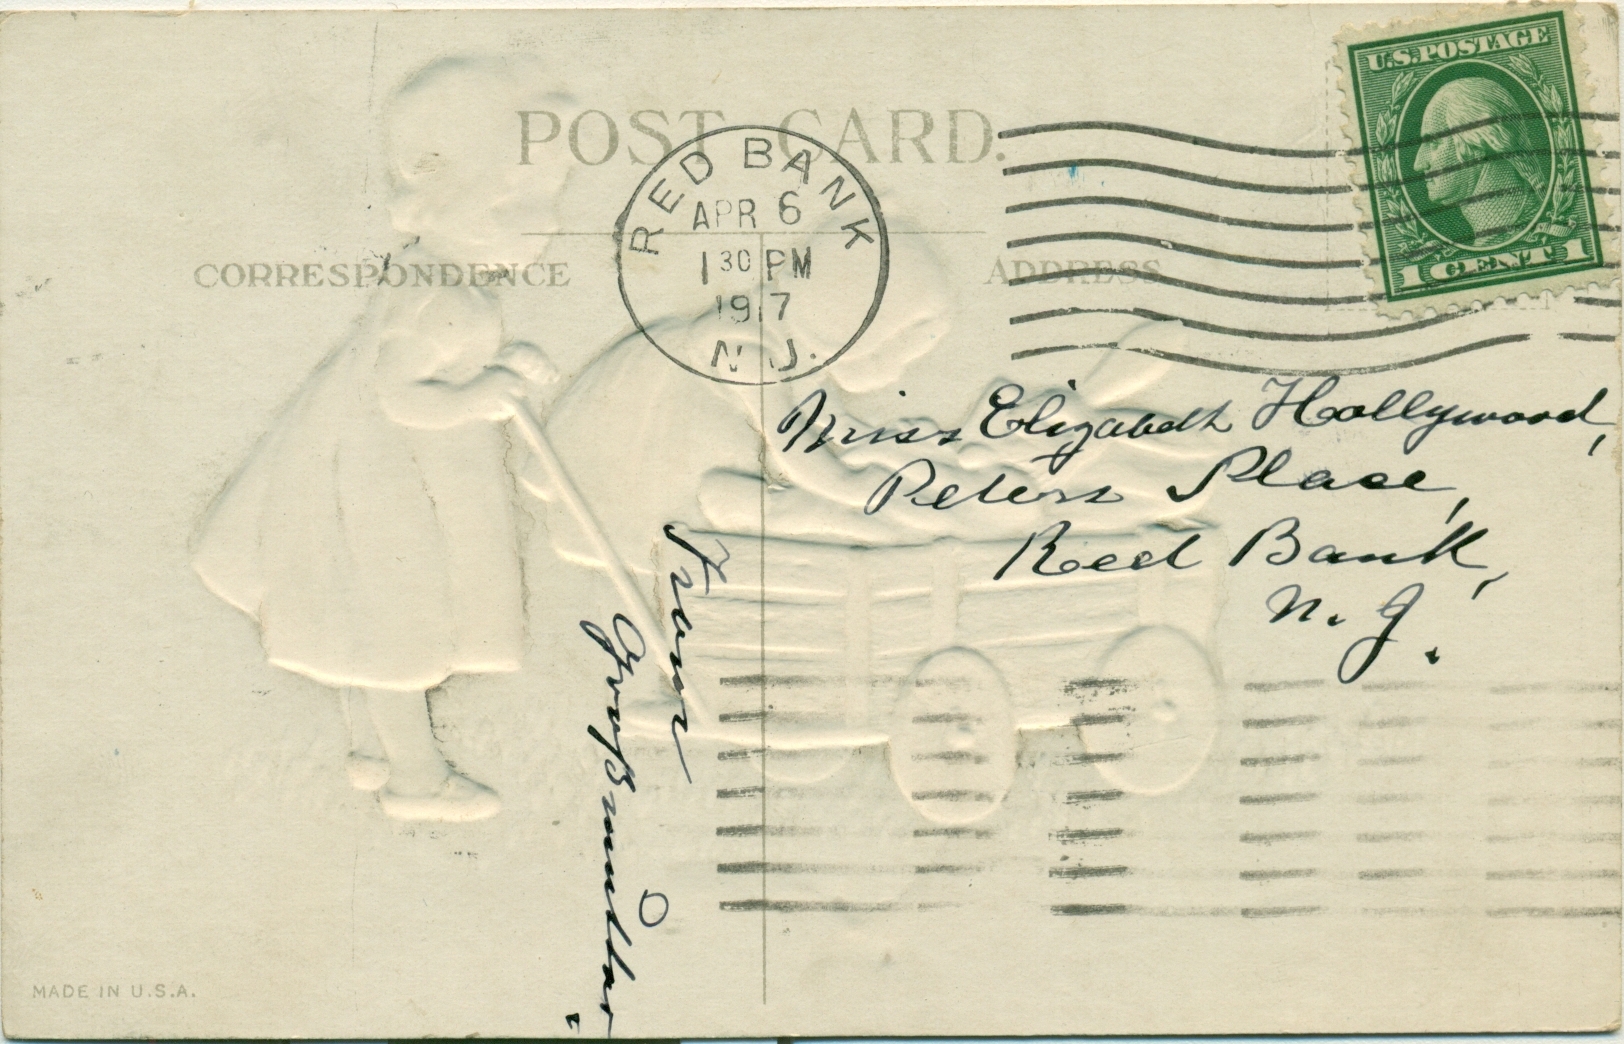 POST CARD.
RED BANK
APR 6
1 30 PM
1917
N. J.
U.S. POSTAGE
1 CENT 1
CORRESPONDENCE
ADDRESS
Miss Elizabeth Hollywood,
Peters Place,
Red Bank,
N. J.
From
Großmutter.
MADE IN U.S.A.